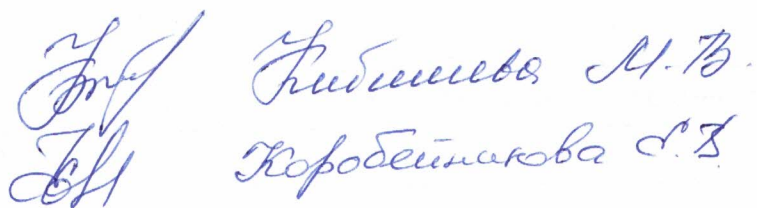 Кибишева М.В.
Коробейникова Е.В.